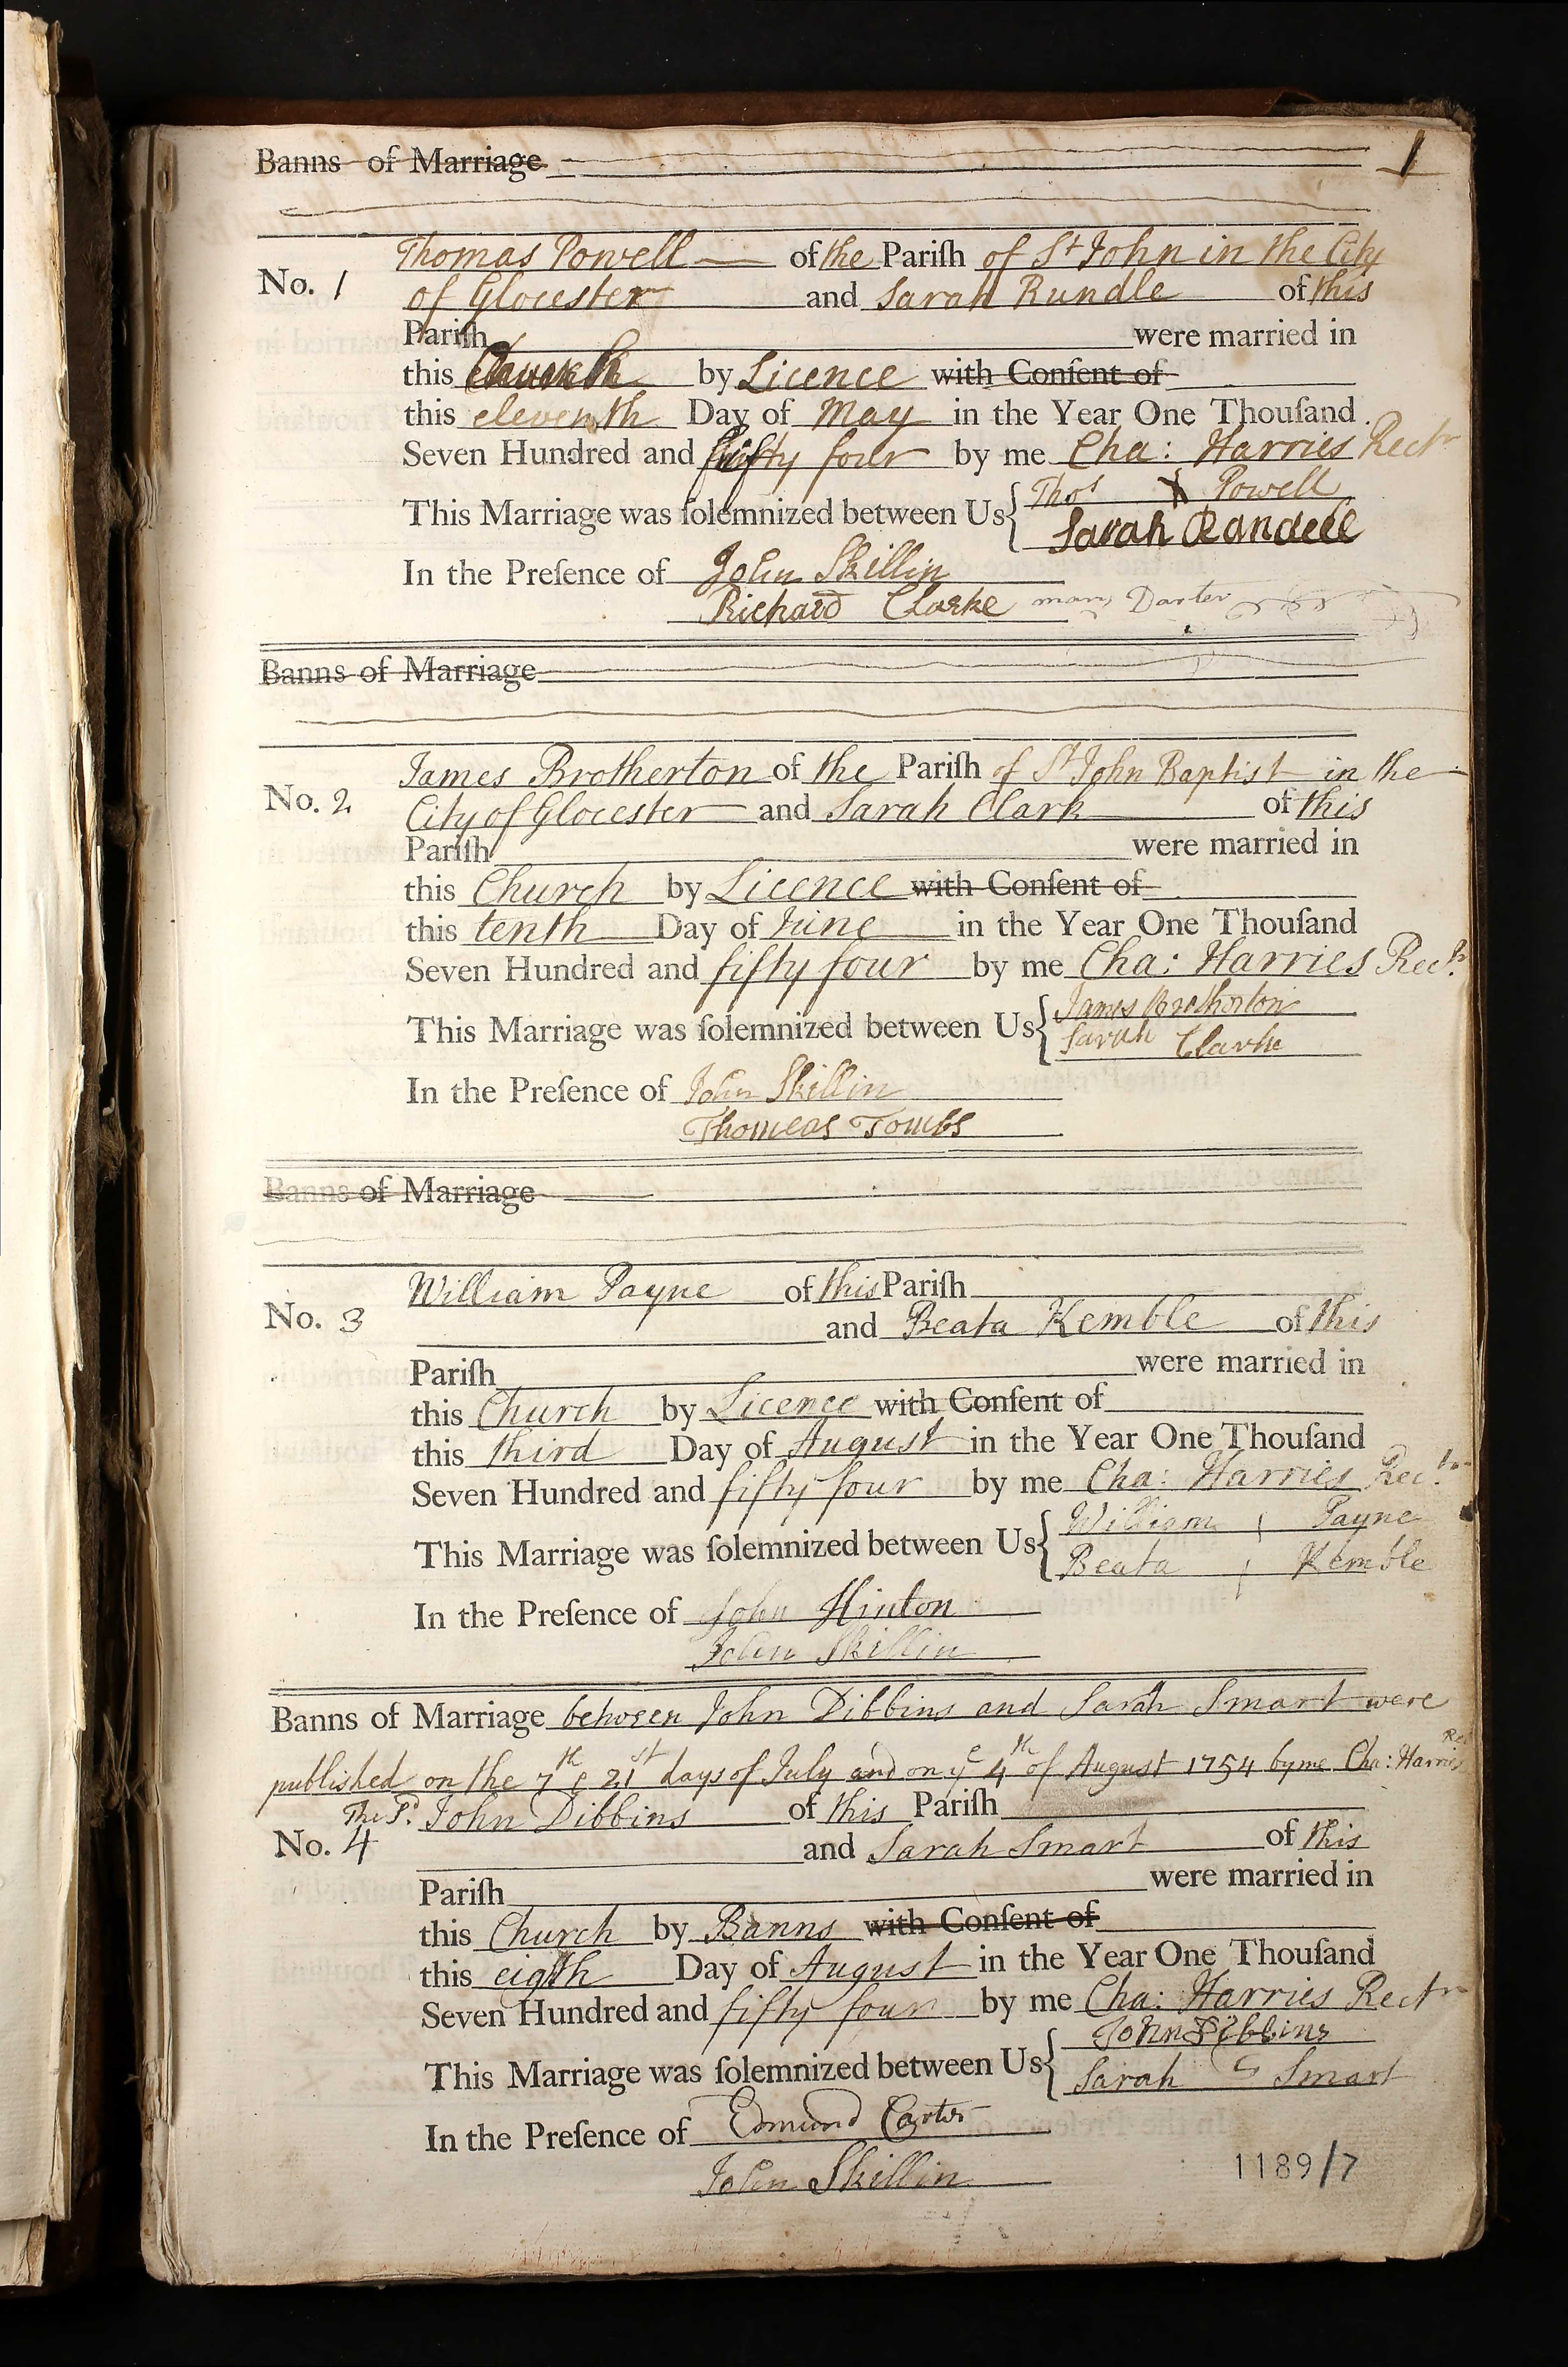 Banns of Marriage
1
Thomas Powell of the Pariſh of St John in the City
No. 1 of Glocester and Sarah Rundle of this
Pariſh were married in
this Church by Licence with Conſent of
this eleventh Day of May in the Year One Thouſand
Seven Hundred and fifty four by me Cha: Harries Rectr
This Marriage was ſolemnized between Us { Thos X Powell
Sarah Randell
In the Preſence of John Skillin
Richard Clarke mary Darter
Banns of Marriage
James Brotherton of the Pariſh of St John Baptist in the
No. 2 City of Glocester and Sarah Clark of this
Pariſh were married in
this Church by Licence with Conſent of
this tenth Day of June in the Year One Thouſand
Seven Hundred and fifty four by me Cha: Harries Rectr
This Marriage was ſolemnized between Us { James Brotherton
Sarah Clarke
In the Preſence of John Skillin
Thomeas Tombs
Banns of Marriage
William Payne of this Pariſh
No. 3 and Beata Kemble of this
Pariſh were married in
this Church by Licence with Conſent of
this third Day of August in the Year One Thouſand
Seven Hundred and fifty four by me Cha: Harries Rectr
This Marriage was ſolemnized between Us { William Payne
Beata Kemble
In the Preſence of John Hinton
John Skillin
Banns of Marriage between John Dibbins and Sarah Smart were
published on the 7th & 21st days of July and on ye 4th of August 1754 by me Cha: Harries Rec
The Sd. John Dibbins of this Pariſh
No. 4 and Sarah Smart of this
Pariſh were married in
this Church by Banns with Conſent of
this eigth Day of August in the Year One Thouſand
Seven Hundred and fifty four by me Cha: Harries Rectr
This Marriage was ſolemnized between Us { John Dibbins
Sarah S Smart
In the Preſence of Edmund Carter
John Skillin
1189/7